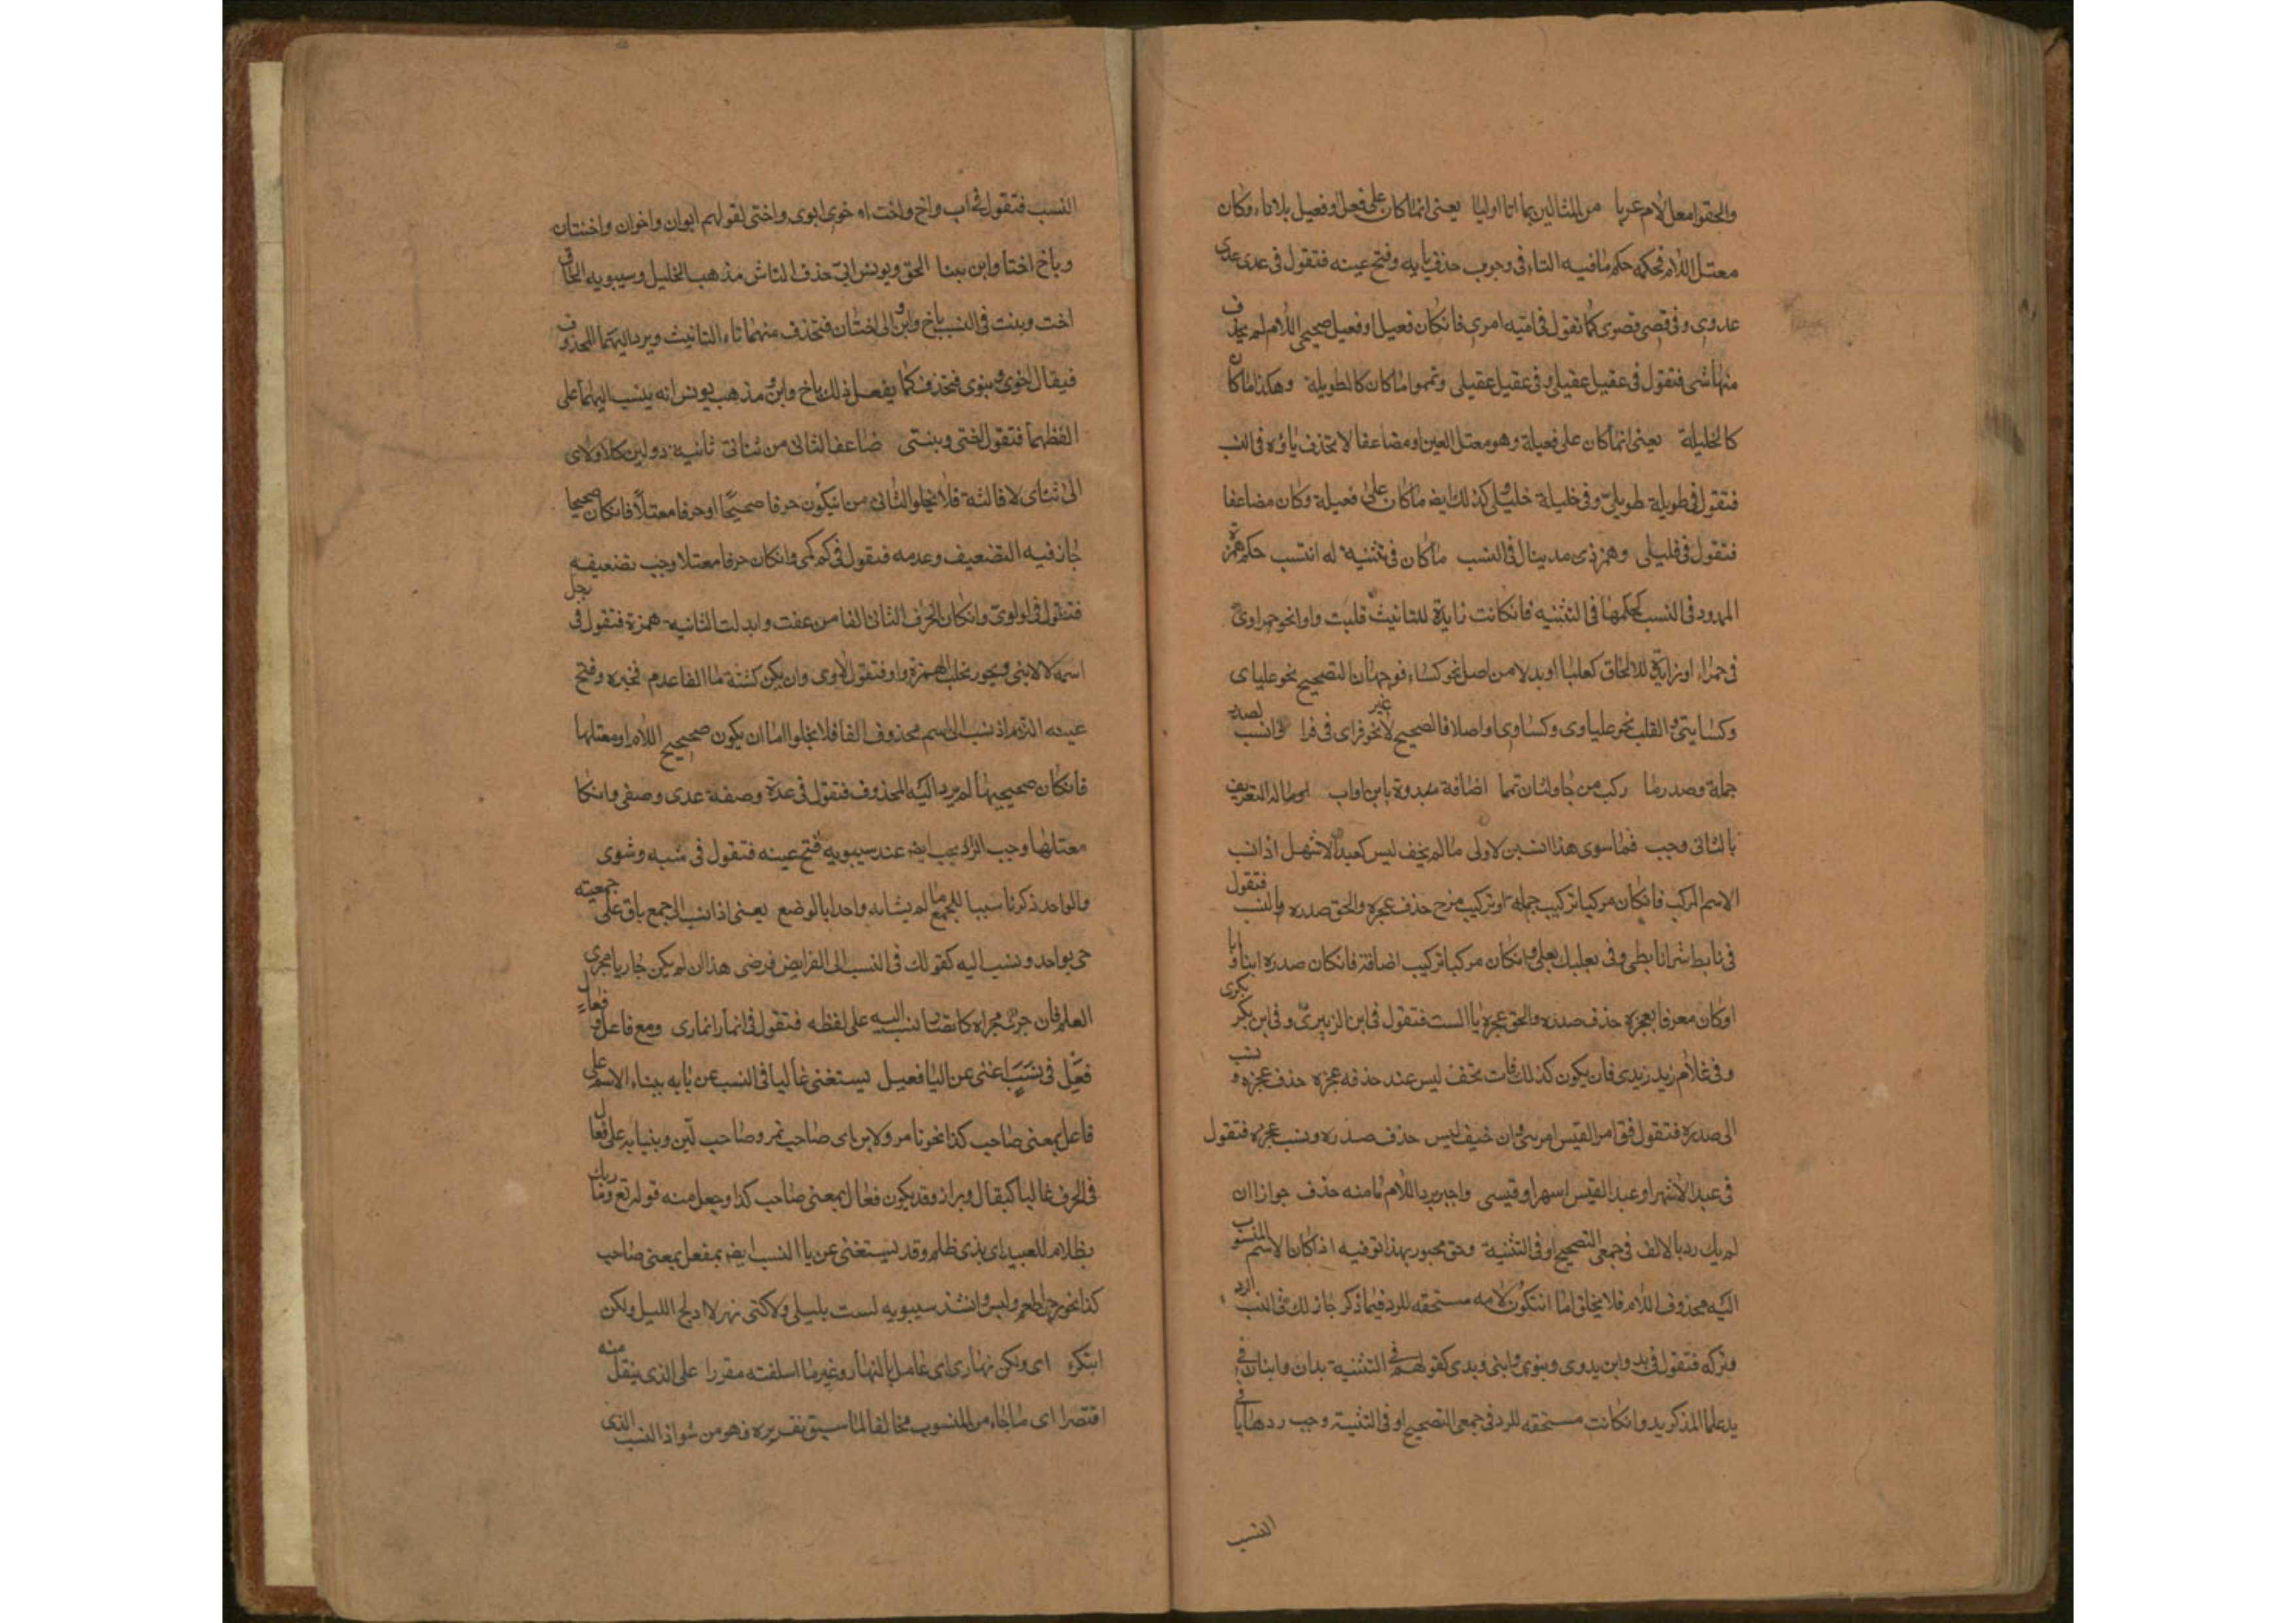 والحقوا معل لام عريا من المثالين بما التا اوليا يعنى انما كان على فعيل او فعيل بلا تاء وكان
معتل اللام فحكمه حكم ما فيه التاء فى وجوب حذف يايه وفتح عينه فتقول فى عدى عدى
عدوى وفى قصى قصوى كما تقول فى امتيه امرى فانكان فعيل او فعيل صحيحى اللام لم يحذف
منها شى فتقول فى عقيل عقيلى وفى عقيل عقيلى وتمموا ما كان كالطويلة وهكذا ما كان
كالجليلة يعنى انما كان على فعيلة وهو معتل العين او مضاعفا لا يحذف ياؤه فى النسب
فتقول فى طويلة طويلىّ وفى خليلة خليلى وكذلك ايضا ما كان على فعيلة وكان مضاعفا
فتقول فى قليلى وهمز ذى مد ينال فى النسب ما كان فى تثنية له انتسب حكم همزة
الممدود فى النسب كحكمها فى التثنيه فانكانت زايدة للتانيث قلبت واوا نحو حمراوى
فى حمراء او زايدة للالحاق كعلبا او بدلا من اصل نحو كساء فوجهان التصحيح نحو عليا ى
وكسايتى والقلب نحو علياوى وكساوى او اصلا فالصحيح لا غير نحو قراى فى قرا وانسب لصدر
جملة وصدر ما ركب من جا ولثان تمما اضافة مبدوة بابن او اب او ماله التعريف
بالثانى وجب فيما سوى هذا انسبن لاولى ما لم يخف لبس كعبد الاشهل اذا نسب
الاسم المركب فانكان مركبا تركيب جملة او تركيب مزج حذف عجزه والحق صدره يا النسب فتقول
فى تابط شرا تابطى وفى بعلبك بعلى وانكان مركبا تركيب اضافة فانكان صدره ابنا وابا
اوكان معرفا بعجزه حذف صدره والحق عجزه يا السب فتقول فى ابن الزبير زبيرى وفى ابن بكر بكرى
وفى غلام زيد زيدى فان يكون كذلك فات تخف لبس عند حذفه عجزه حذف عجزه ونسب
الى صدره فتقول فى امر القيس امرسى وان خيف لبس حذف صدره ونسب عجزه فتقول
فى عبد الاشهر او عبد القيس اسهر او قيسى واجبر برد اللام ما منه حذف جوازا ان
لم يك رد بالالف فى جمعى التصحيح او فى التثنية وحق مجبور بهذا توفيه اذا كان الاسم المنسوب
اليه محذوف اللام فلا يخلق اما انتكون لامه مستحقه للرد فيما ذكر جاز لك فى النسب الرد
وتركه فتقول فى يد وابن يدوى وبنوى وابنى ويدى كقولهم فى التثنية يدان وابنان وفى
يد علما المذكر يدو انكانت مستحقه للرد فى جمعى التصحيح او فى التثنية وجب ردها يا فى
النسب
النسب فتقول فى اب واخ واخت او خوى ابوى واختى لقولهم ابوان واخوان واختان
وباخ اختا وابن بنتا الحق ويونس ابى حذف التاش مذهب الخليل وسيبويه الحاق
اخت وبنت فى النسب باخ وابن والى اختان فتحذف منهما تاء التانيث ويرد اليهما المحذوف
فيقال اخوى وبنوى فتحذف كما يفعل ذلك باخ وابن ومذهب يونس انه ينسب اليهما على
الفظهما فتقول اختى وبنتى ضاعف الثانى من ثنائى ثانيه ذو لين كلا ولاى
الى ثناى لا ثالثة فلا يخلوا الثانى من انيكون حرفا صحيحًا او حرفا معتلاً فانكان صحيحا
جاز فيه التضعيف وعدمه فتقول فى كم كمى وانكان حرفا معتلا وجب تضعيفه
فتقول فى لو لوى وانكان الحرف الثانى الفا من عفت وابدلت الثانيه همزة فتقول فى رجل
اسمه لا لائى ويجوز تحلب الهمزة واو فتقول لاوى وان يكن كشية ما الفا عدم فجبره وفتح
عينه التزم اذ نسب الى اسم محذوف الفا فلا يخلوا اما ان يكون صحيح اللام او معتلها
فانكان صحيحيها لم يرد اليه المحذوف فتقول فى عدة وصفة عدى وصفى وانكا
معتلها وجب الرد يجب ايضا عند سيبويه فتح عينه فتقول فى شيه وشوى
والواحد ذكر ناسبا للجمع ما لم يشابه واحدا بالوضع يعنى اذا نسب الى جمع باق على جمعيته
جى بواحد ونسب اليه كقولك فى النسب الى الفرايض فرضى هذا ان لم يكن جاريا مجرى
العلم فان جرى مجراه كانصار نسب اليه على لفظه فتقول فى انمار انمارى ومع فاعل وفعال
فعل فى نسب اغنى عن اليا فعيل يستغنى غاليا فى النسب عن يايه ببناء الاسم على
فاعل بمعنى صاحب كذا نحو تامر ولابن اى صاحب تمر وصاحب لبن وبنيايه على فعال
فى الحرف غاليا كبقال وبزاز وقد يكون فعال بمعنى صاحب كذا وجعل منه قوله تع وما ربك
بظلام للعبيد اى بذى ظلم وقد يستغنى عن يا النسب ايضا بمفعل بمعنى صاحب
كذا نحو رجل طعم ولبس وانشد سيبويه لست بليلى ولاكنى نهر لا ادلج الليل ولكن
ابتكره اى ولكن نهارى اى عامل بالنهار وغير ما اسلفته مقررا على الذى ينقل منه
اقتصرا اى ما جاء من المنسوب مخالفا لما سبق تقريره فهو من شواذ النسب الذى